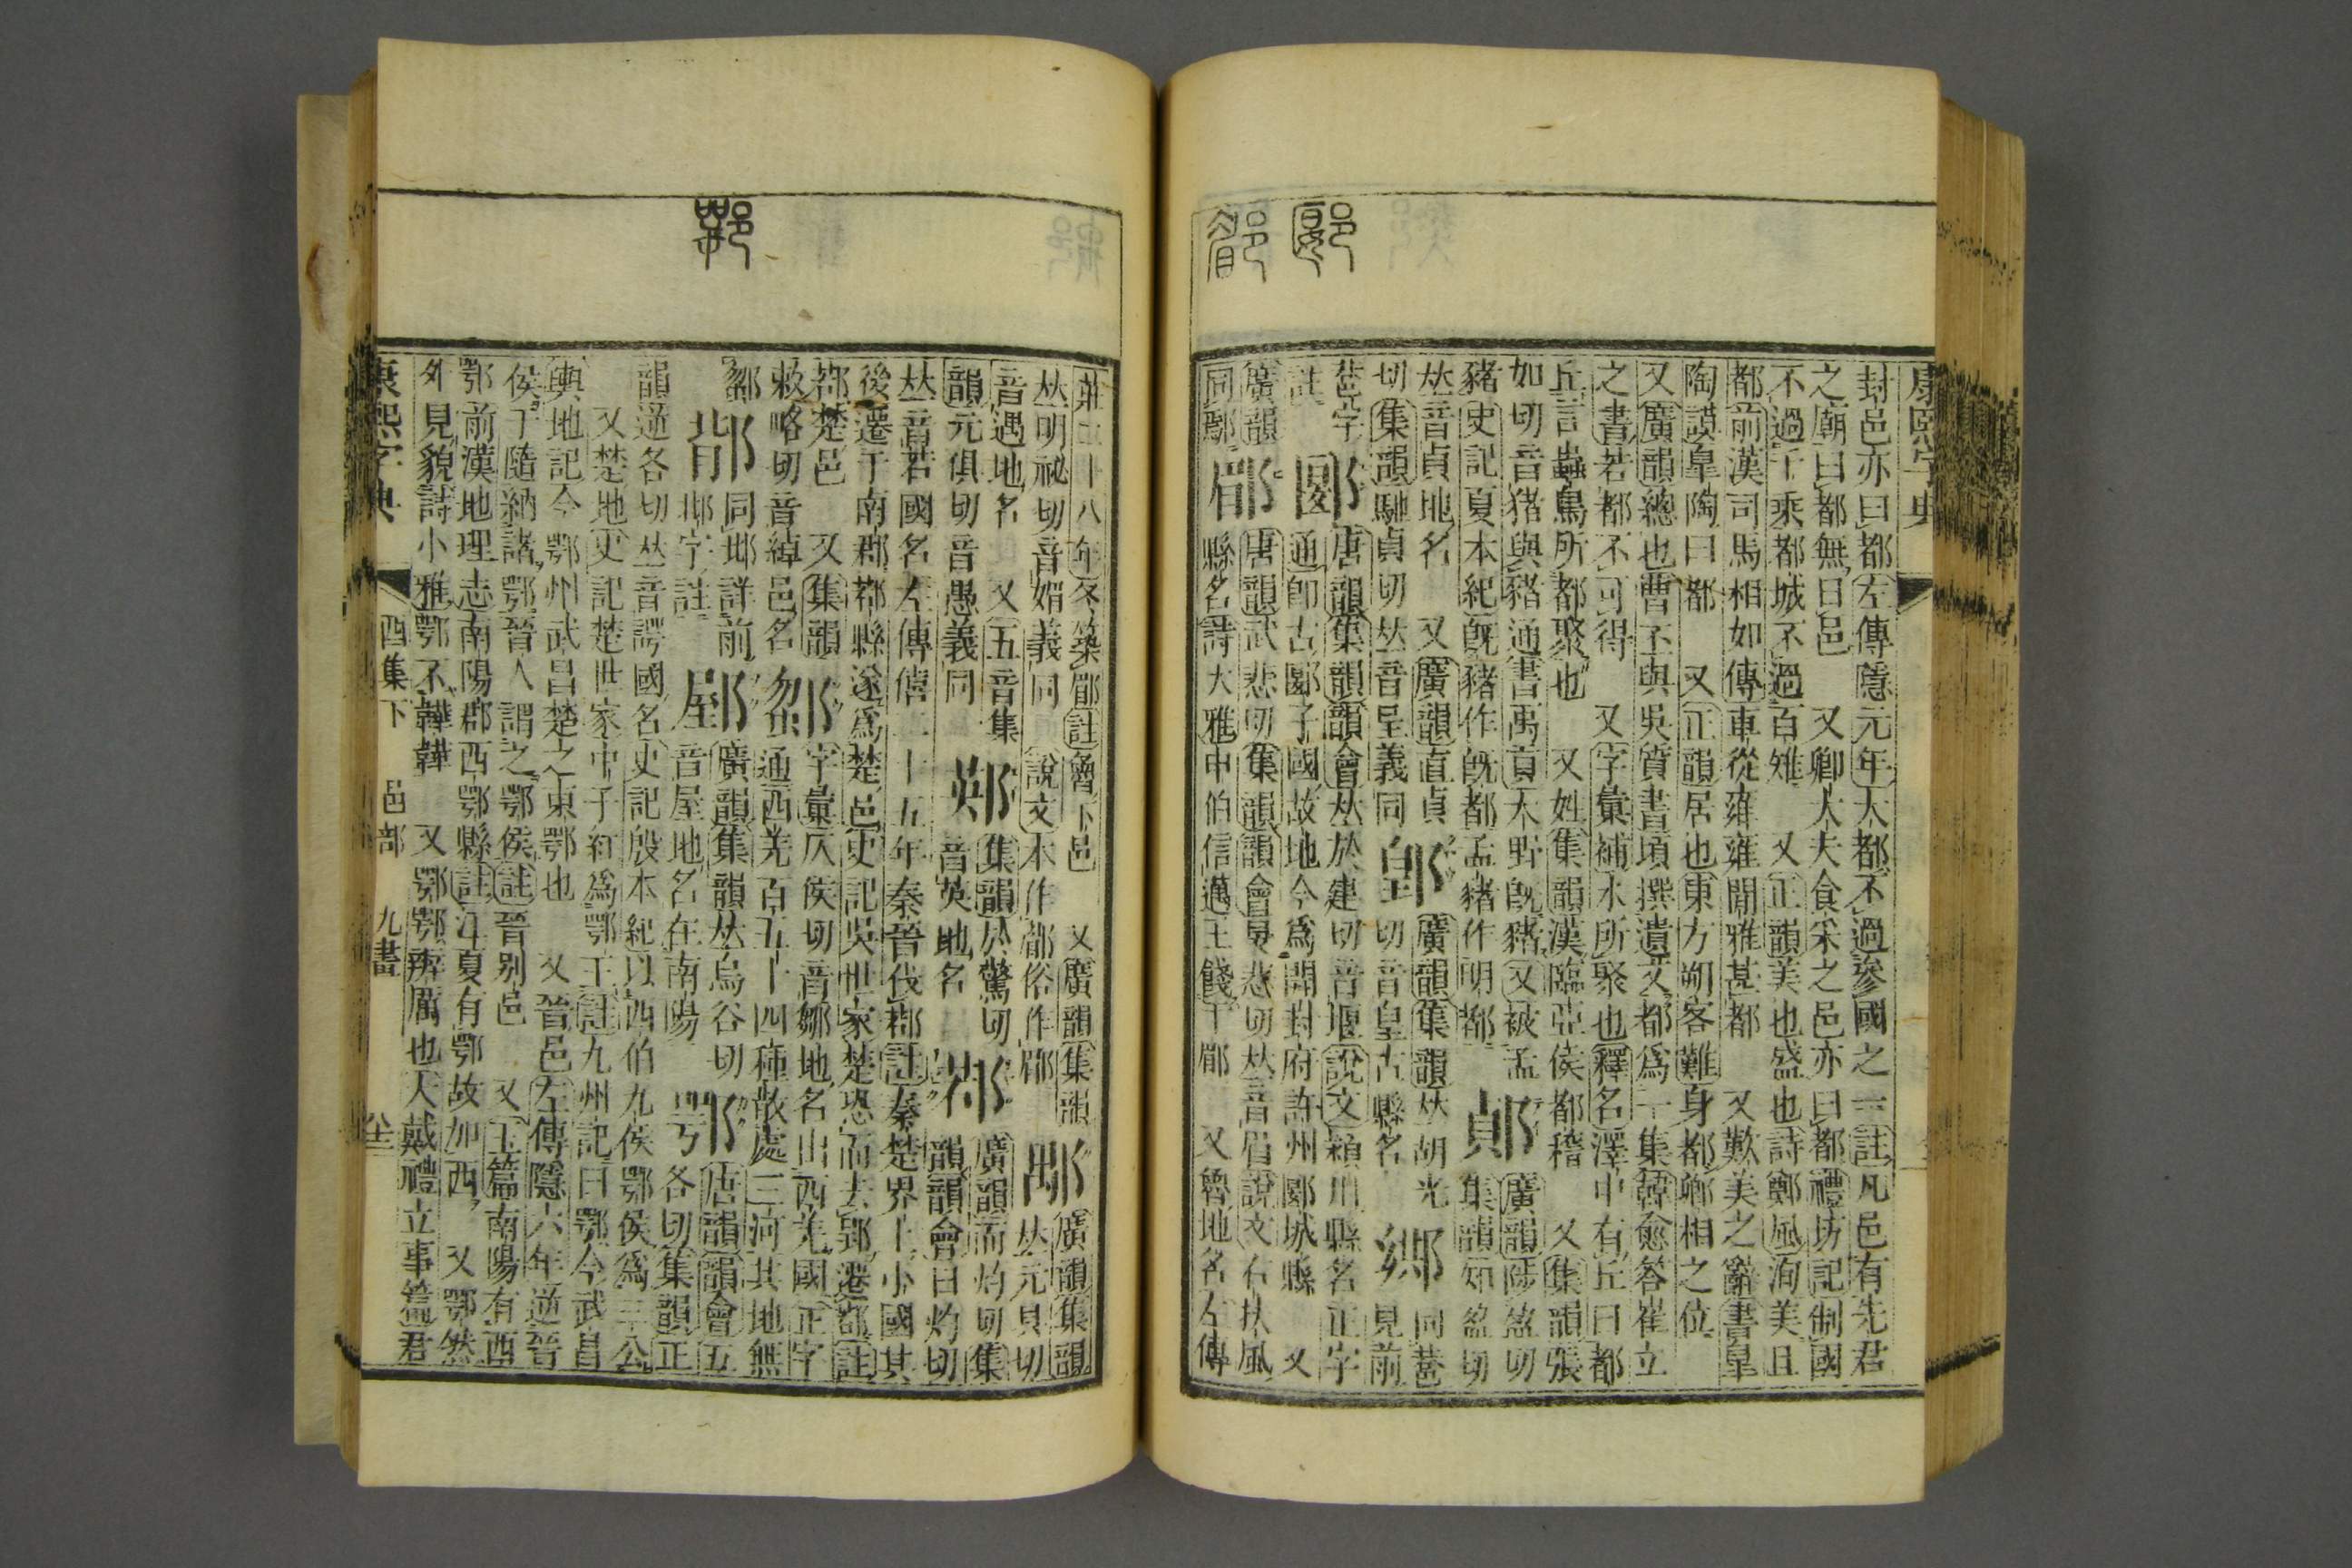 康熙字典
封邑亦曰都左傳隱元年大都不過參國之一註凡邑有先君
之廟曰都無曰邑 又卿大夫食采之邑亦曰都禮坊記制國
不過千乘都城不過百雉 又正韻美也盛也詩鄭風洵美且
都前漢司馬相如傳車從雍容閒雅甚都 又歎美之辭書皐
陶謨皐陶曰都 又正韻居也東方朔客難身都卿相之位
又廣韻總也曹丕與吳質書頃撰遺文都爲一集韓愈答崔立
之書若都不可得 又字彙補水所聚也釋名澤中有丘曰都
丘言蟲鳥所都聚也 又姓集韻漢臨亞侯都稽 又集韻張
如切音猪與豬通書禹貢大野旣豬又被孟
豬史記夏本紀旣豬作旣都孟豬作明都
鄖 廣韻陟盈切
集韻知盈切
𠀤音貞地名 又廣韻直貞
切集韻馳貞切𠀤音呈義同
鄓 廣韻集韻𠀤胡光
切音皇古縣名
鄕 同𨞰見前
𨛜字
註
郾 唐韻集韻韻會𠀤於建切音堰說文潁川縣名正字
通卽古郾子國故地今爲開封府許州郾城縣 又
廣韻
同鄢
郿 唐韻武悲切集韻韻會旻悲切𠀤音眉說文右扶風
縣名詩大雅申伯信邁王餞于郿 又魯地名左傳
莊二十八年冬築郿註魯下邑 又廣韻集韻
𠀤明祕切音媚義同 說文本作𨝟俗作郿
鄅 廣韻集韻
𠀤元具切
音遇地名 又五音集
韻元俱切音愚義同
𨜏 集韻於驚切
音英地名
鄀 廣韻而灼切集
韻韻會日灼切
𠀤音若國名左傳僖二十五年秦晉伐鄀註秦楚界上小國其
後遷于南郡鄀縣遂爲楚邑史記吳世家楚恐而去郢遷鄀註
鄀楚邑 又集韻
敕略切音綽邑名
𨛿 字彙仄侯切音鄒地名出西羌國正字
通西羌百五十四種散處三河其地無
𨛿
𨜓 同邶詳前
邶字註
𨜛 廣韻集韻𠀤烏谷切
音屋地名在南陽
鄂 唐韻韻會五
各切集韻正
韻逆各切𠀤音諤國名史記殷本紀以西伯九侯鄂侯爲三公
又楚地史記楚世家中子紅爲鄂王註九州記曰鄂今武昌
輿地記今鄂州武昌楚之東鄂也 又晉邑左傳隱六年逆晉
侯于隨納諸鄂晉人謂之鄂侯註晉別邑 又玉篇南陽有西
鄂前漢地理志南陽郡西鄂縣註江夏有鄂故加西 又鄂然
外見貌詩小雅鄂不韡韡 又鄂鄂辨厲也大戴禮立事篇君
康熙字典 酉集下 邑部 九畫